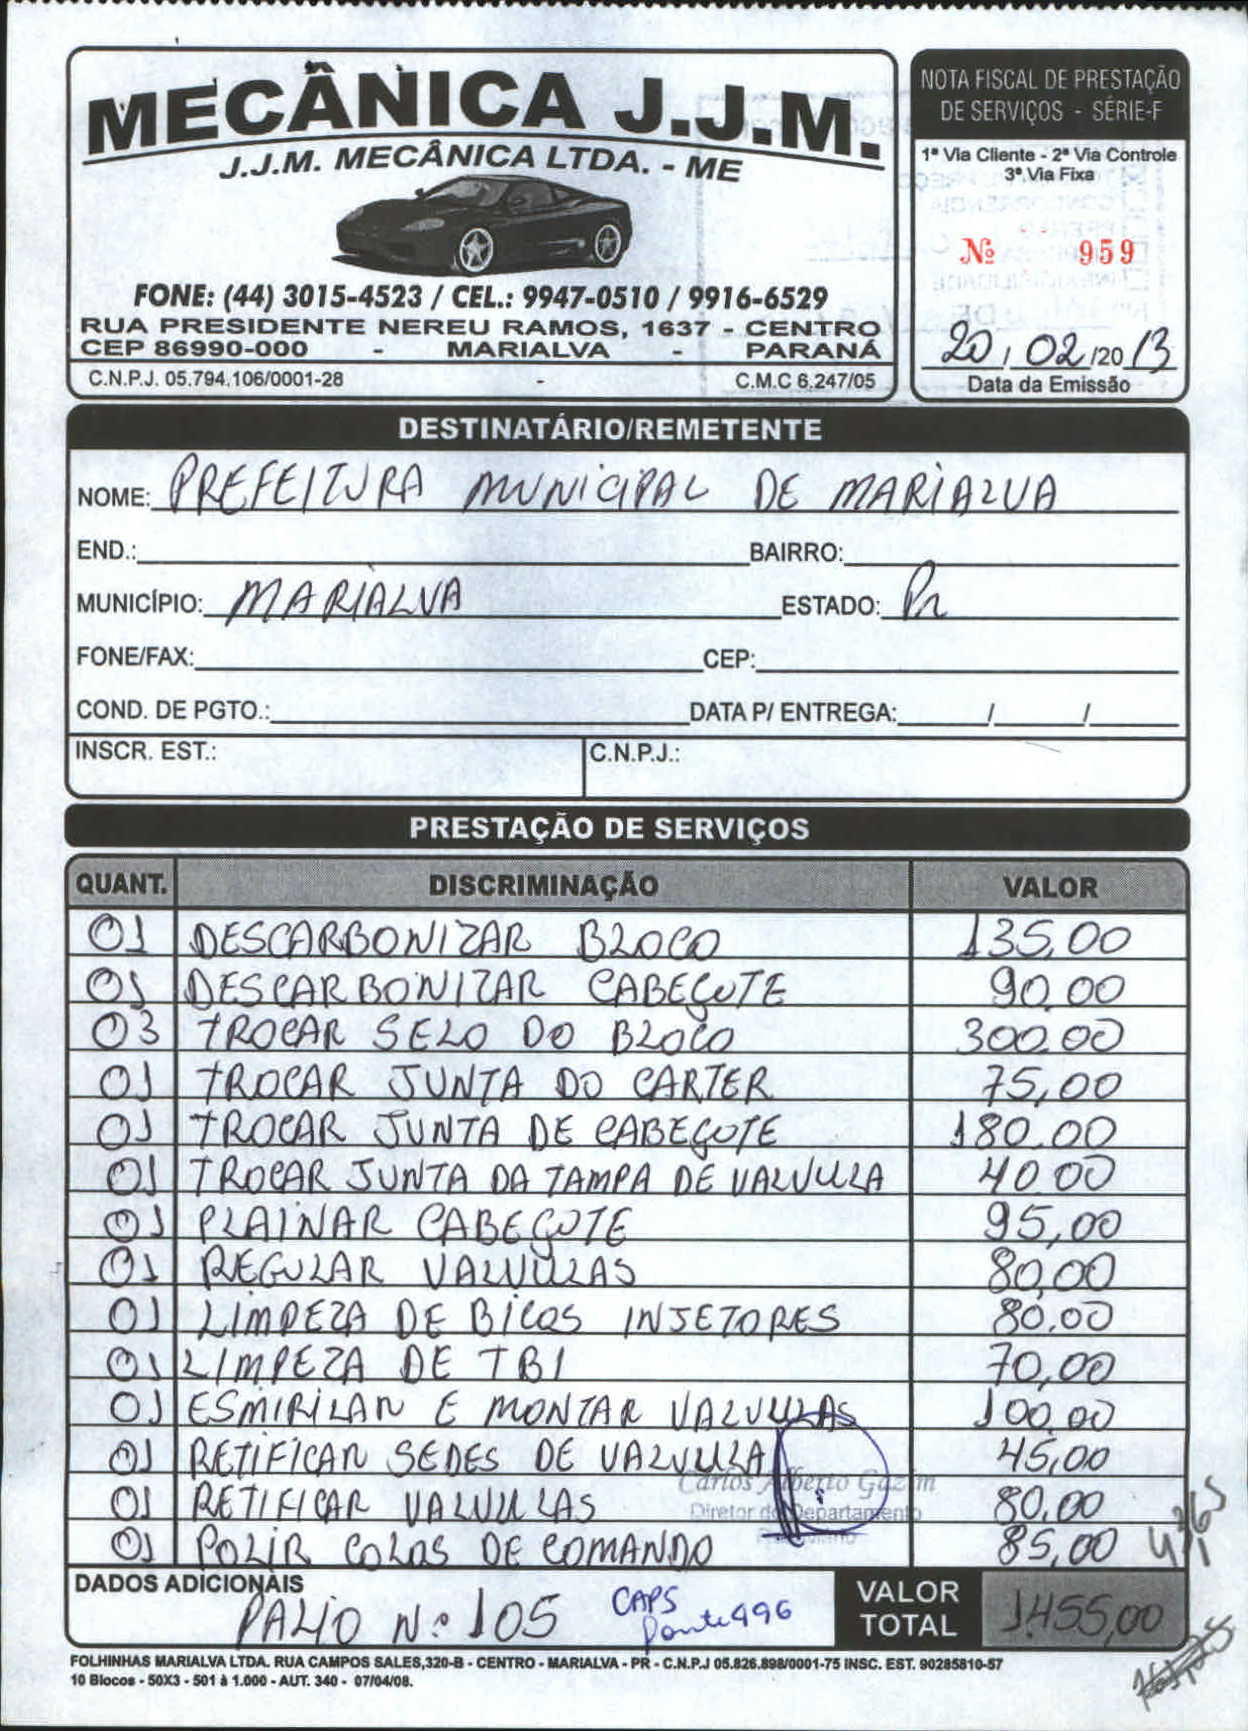 MECÂNICA J.J.M.
J.J.M. MECÂNICA LTDA. - ME
FONE: (44) 3015-4523 / CEL.: 9947-0510 / 9916-6529
RUA PRESIDENTE NEREU RAMOS, 1637 - CENTRO
CEP 86990-000 - MARIALVA - PARANÁ
C.N.P.J. 05.794.106/0001-28 - C.M.C 6.247/05
NOTA FISCAL DE PRESTAÇÃO
DE SERVIÇOS - SÉRIE-F
1ª Via Cliente - 2ª Via Controle
3ª Via Fixa
Nº 959
20/02/2013
Data da Emissão
DESTINATÁRIO/REMETENTE
NOME: PREFEITURA MUNICIPAL DE MARIALVA
END.: BAIRRO:
MUNICÍPIO: MARIALVA ESTADO: Pr
FONE/FAX: CEP:
COND. DE PGTO.: DATA P/ ENTREGA: / /
INSCR. EST.: C.N.P.J.:
PRESTAÇÃO DE SERVIÇOS
QUANT. DISCRIMINAÇÃO VALOR
01 DESCARBONIZAR BLOCO 135,00
01 DESCARBONIZAR CABEÇOTE 90,00
03 TROCAR SELO DO BLOCO 300,00
01 TROCAR JUNTA DO CARTER 75,00
01 TROCAR JUNTA DE CABEÇOTE 180,00
01 TROCAR JUNTA DA TAMPA DE VALVULA 40,00
01 PLAINAR CABEÇOTE 95,00
01 REGULAR VALVULAS 80,00
01 LIMPEZA DE BICOS INJETORES 80,00
01 LIMPEZA DE TBI 70,00
01 ESMIRILAR E MONTAR VALVULAS 100,00
01 RETIFICAR SEDES DE VALVULA 45,00
Carlos Alberto Gazim
Diretor do Departamento
01 RETIFICAR VALVULAS 80,00
01 POLIR COLOS DE COMANDO 85,00
DADOS ADICIONAIS
PALIO Nº 105 CAPS
Ponte 496
VALOR TOTAL 1.455,00
FOLHINHAS MARIALVA LTDA. RUA CAMPOS SALES,320-B - CENTRO - MARIALVA - PR - C.N.P.J 05.826.898/0001-75 INSC. EST. 90285810-57
10 Blocos - 50X3 - 501 à 1.000 - AUT. 340 - 07/04/08.